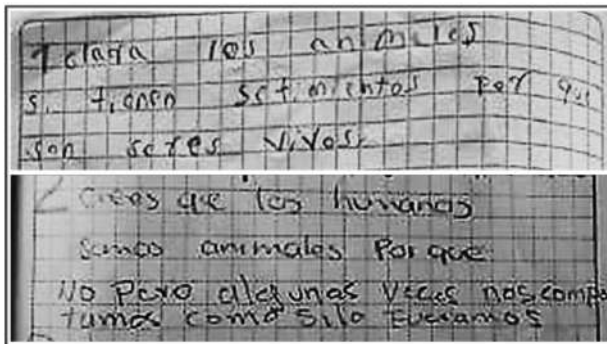 1 claria los animales
si tienen setimientos por que
son seres vivos.
2 crees que los humanos
somos animales Por que
No Pero algunas veces nos compo
tumos como silo fueramos